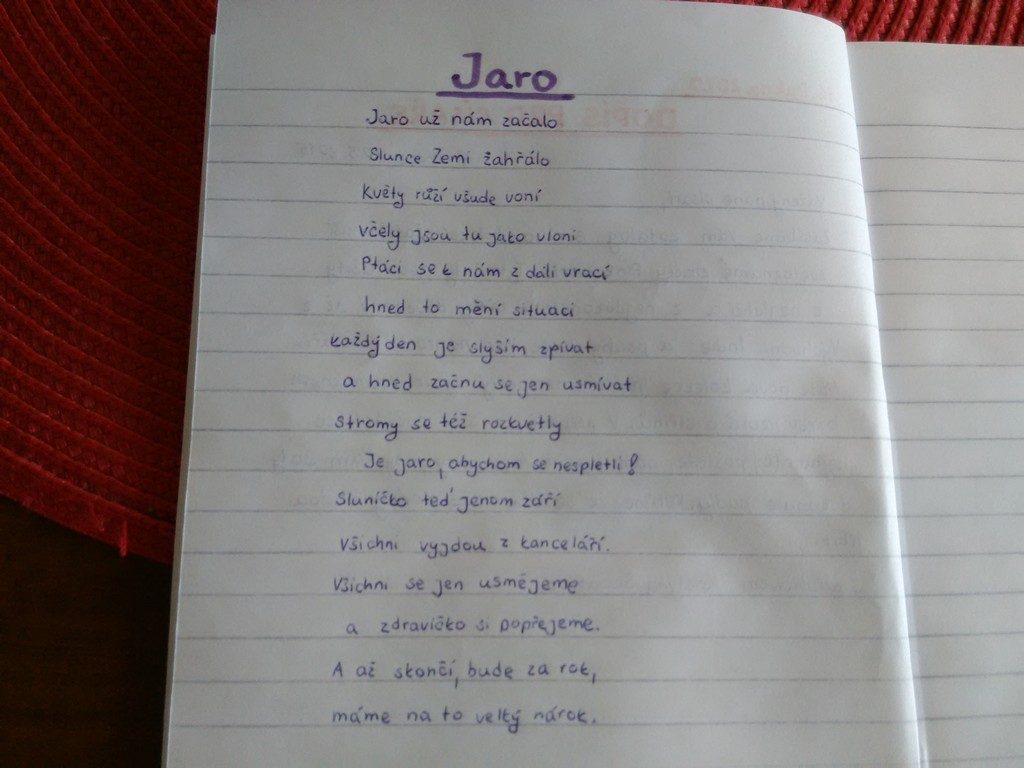 Jaro
Jaro už nám začalo
Slunce Zemi žahřálo
Květy růží všude voní
včely jsou tu jako vloni
Ptáci se k nám z dáli vrací
hned to mění situaci
každý den je slyším zpívat
a hned začnu se jen usmívat
Stromy se též rozkvetly
Je jaro, abychom se nespletli!
Sluníčko teď jenom září
Všichni vyjdou z kanceláří.
Všichni se jen usmějeme
a zdravíčko si popřejeme.
A až skončí, bude za rok,
máme na to velký nárok.